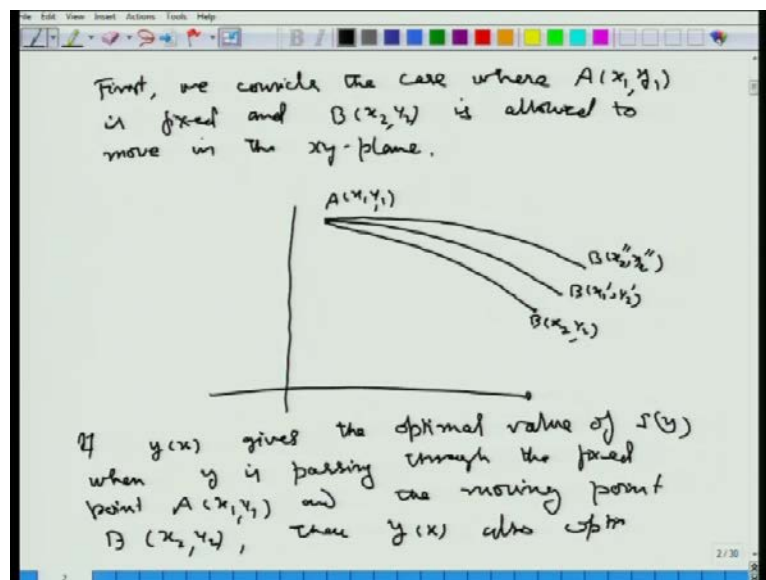 File Edit View Insert Actions Tools Help
First, we consider the case where A(x₁,y₁)
is fixed and B(x₂,y₂) is allowed to
move in the xy-plane.
A(x₁,y₁)
B(x₂'',y₂'')
B(x₁',y₂')
B(x₂,y₂)
If y(x) gives the optimal value of S(y)
when y is passing through the fixed
point A(x₁,y₁) and the moving point
B(x₂,y₂), then y(x) also optim
2/30
2